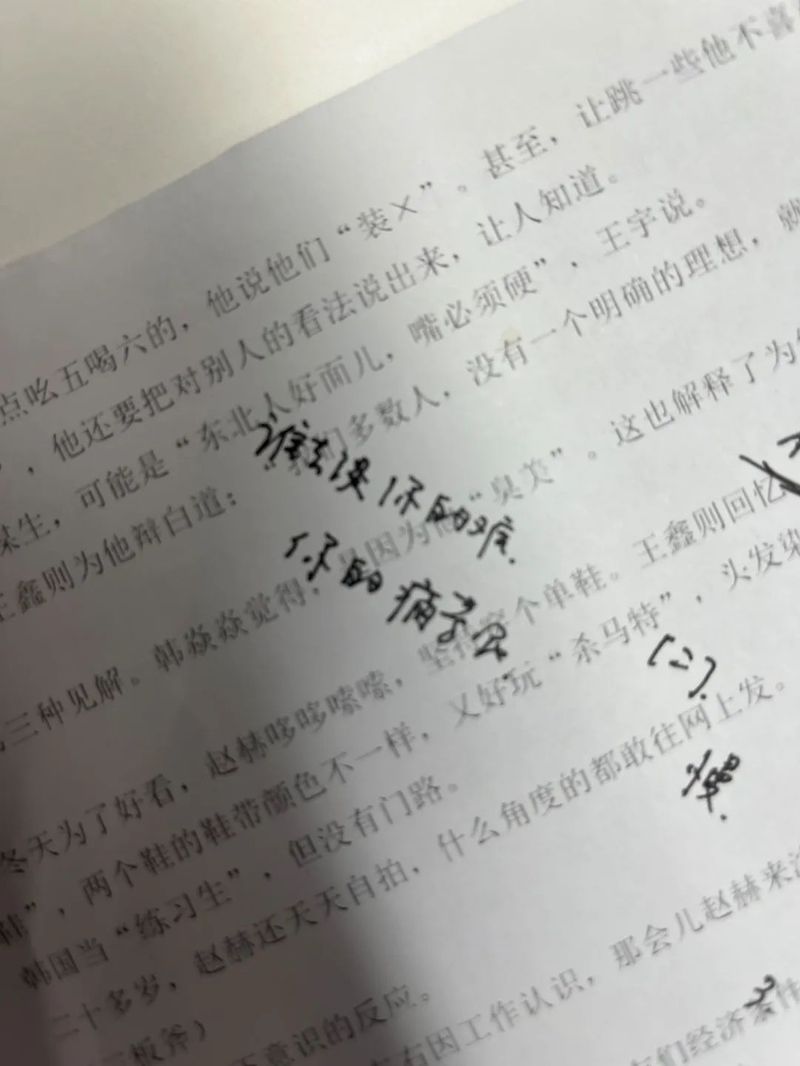 点吆五喝六的，他说他们“装×”。甚至，让跳一些他不喜
，他还要把对别人的看法说出来，让人知道。
谋生，可能是“东北人好面儿，嘴必须硬”，王宇说。
王鑫则为他辩白道：们多数人，没有一个明确的理想，就
你的难
你的
三种见解。韩焱焱觉得，因为他“臭美”。这也解释了为
冬天为了好看，赵赫哆哆嗦嗦，坚持穿个单鞋。王鑫则回忆
鞋”，两个鞋的鞋带颜色不一样，又好玩“杀马特”，头发染
(二)
韩国当“练习生”，但没有门路。
二十多岁，赵赫还天天自拍，什么角度的都敢往网上发。
三板斧）
下意识的反应。
右因工作认识，那会儿赵赫来
们经济条件